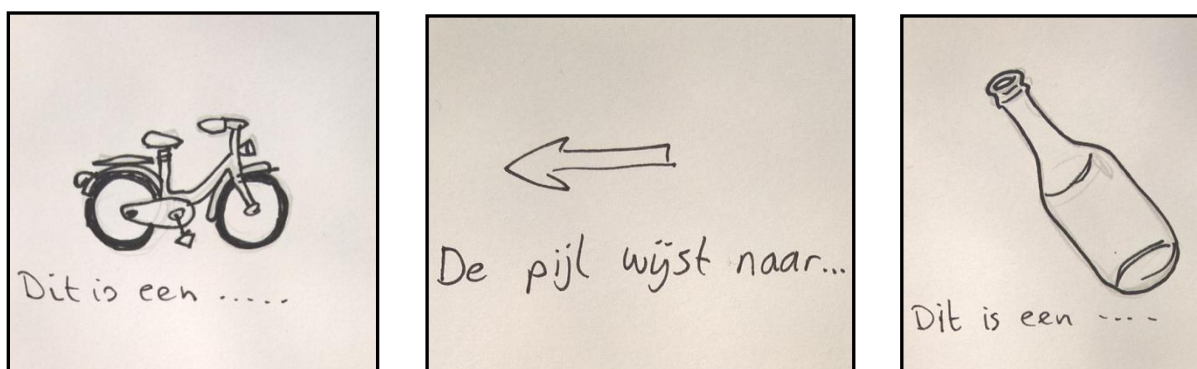 Dit is een .....
De pijl wijst naar...
Dit is een ----